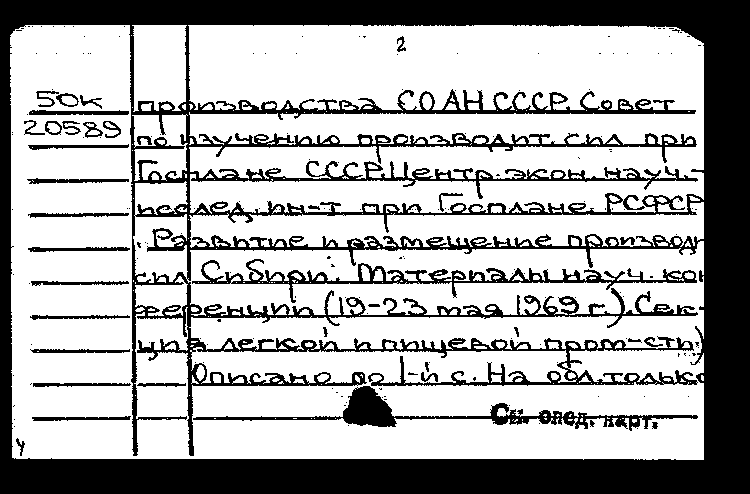 2
50к
20589
производства СО АН СССР. Совет
по изучению производит. сил при
Госплане СССР. Центр. экон. науч.-
исслед. ин-т при Госплане РСФСР
. Развитие и размещение производ
сил Сибири. Материалы науч. кон
ференции (19-23 мая 1969 г.). Сек-
ция легкой и пищевой пром-сти)
Описано по 1-й с. На обл. только
См. след. карт.